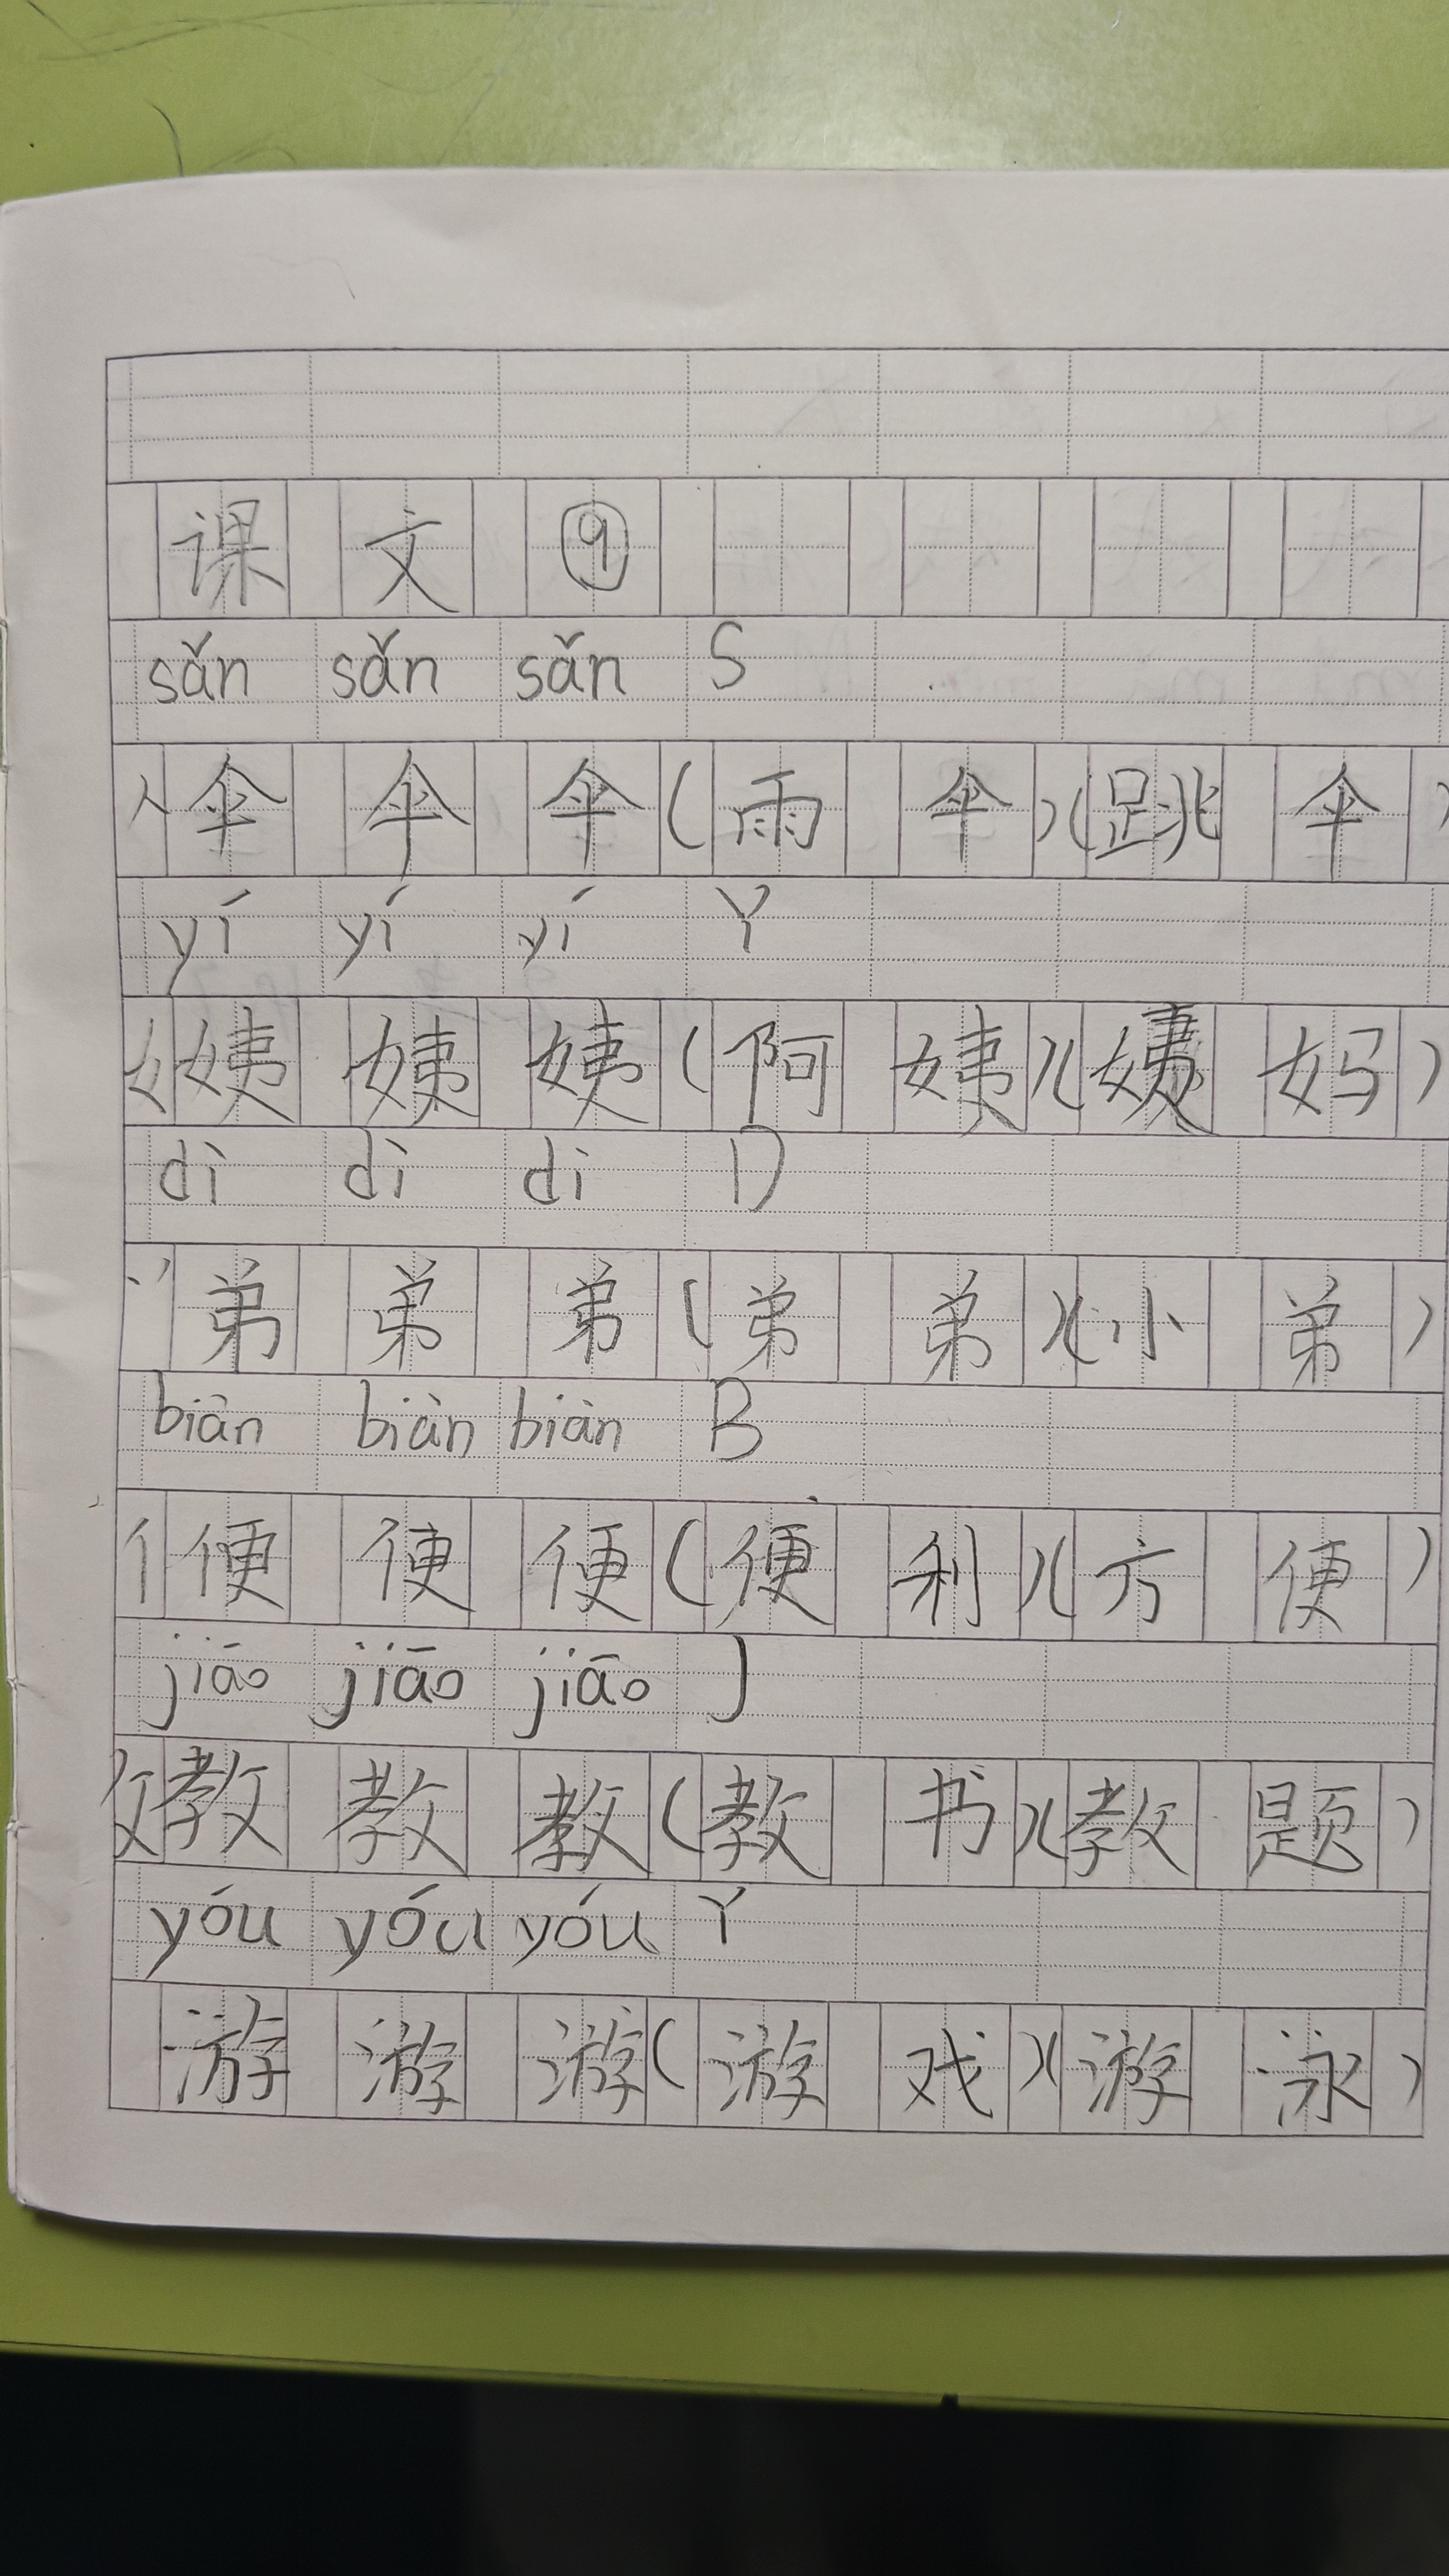 课文⑨
sǎn sǎn sǎn S
人伞伞伞(雨伞)(跳伞)
yí yí yí Y
女姨姨姨(阿姨)(姨妈)
dì dì dì D
丷弟弟弟(弟弟)(小弟)
biàn biàn biàn B
亻便便便(便利)(方便)
jiāo jiāo jiāo J
攵教教教(教书)(教题)
yóu yóu yóu Y
游游游(游戏)(游泳)